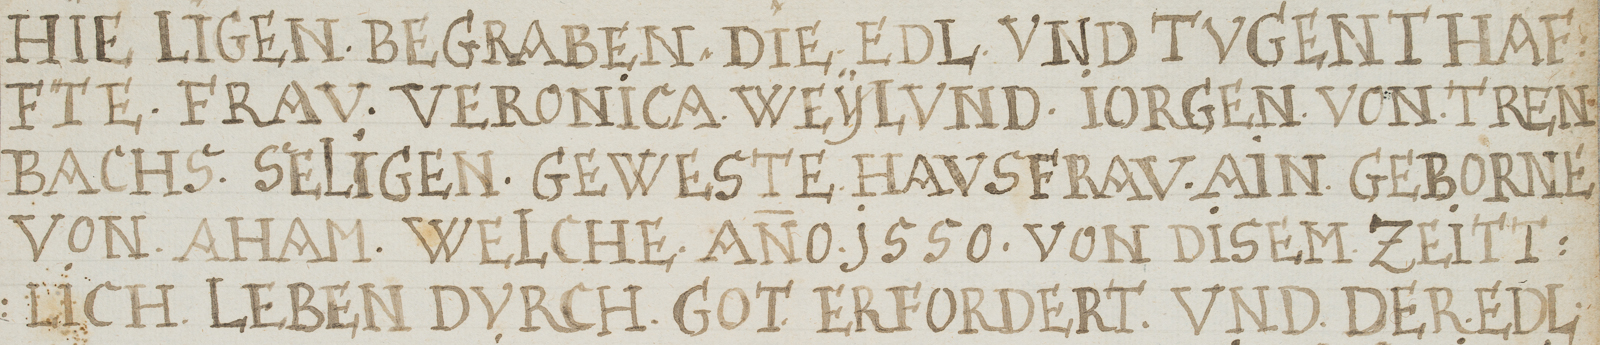 HIE LIGEN. BEGRABEN. DIE. EDL. VND TVGENTHAF:
FTE. FRAV. VERONICA. WEŸLVND. IORGEN. VON. TREN
BACHS. SELIGEN. GEWESTE. HAVSFRAV. AIN. GEBORNE
VON. AHAM. WELCHE. AN̄O. j550. VON DISEM. ZEITT:
: LICH. LEBEN DVRCH. GOT. ERFORDERT. VND. DER. EDL: